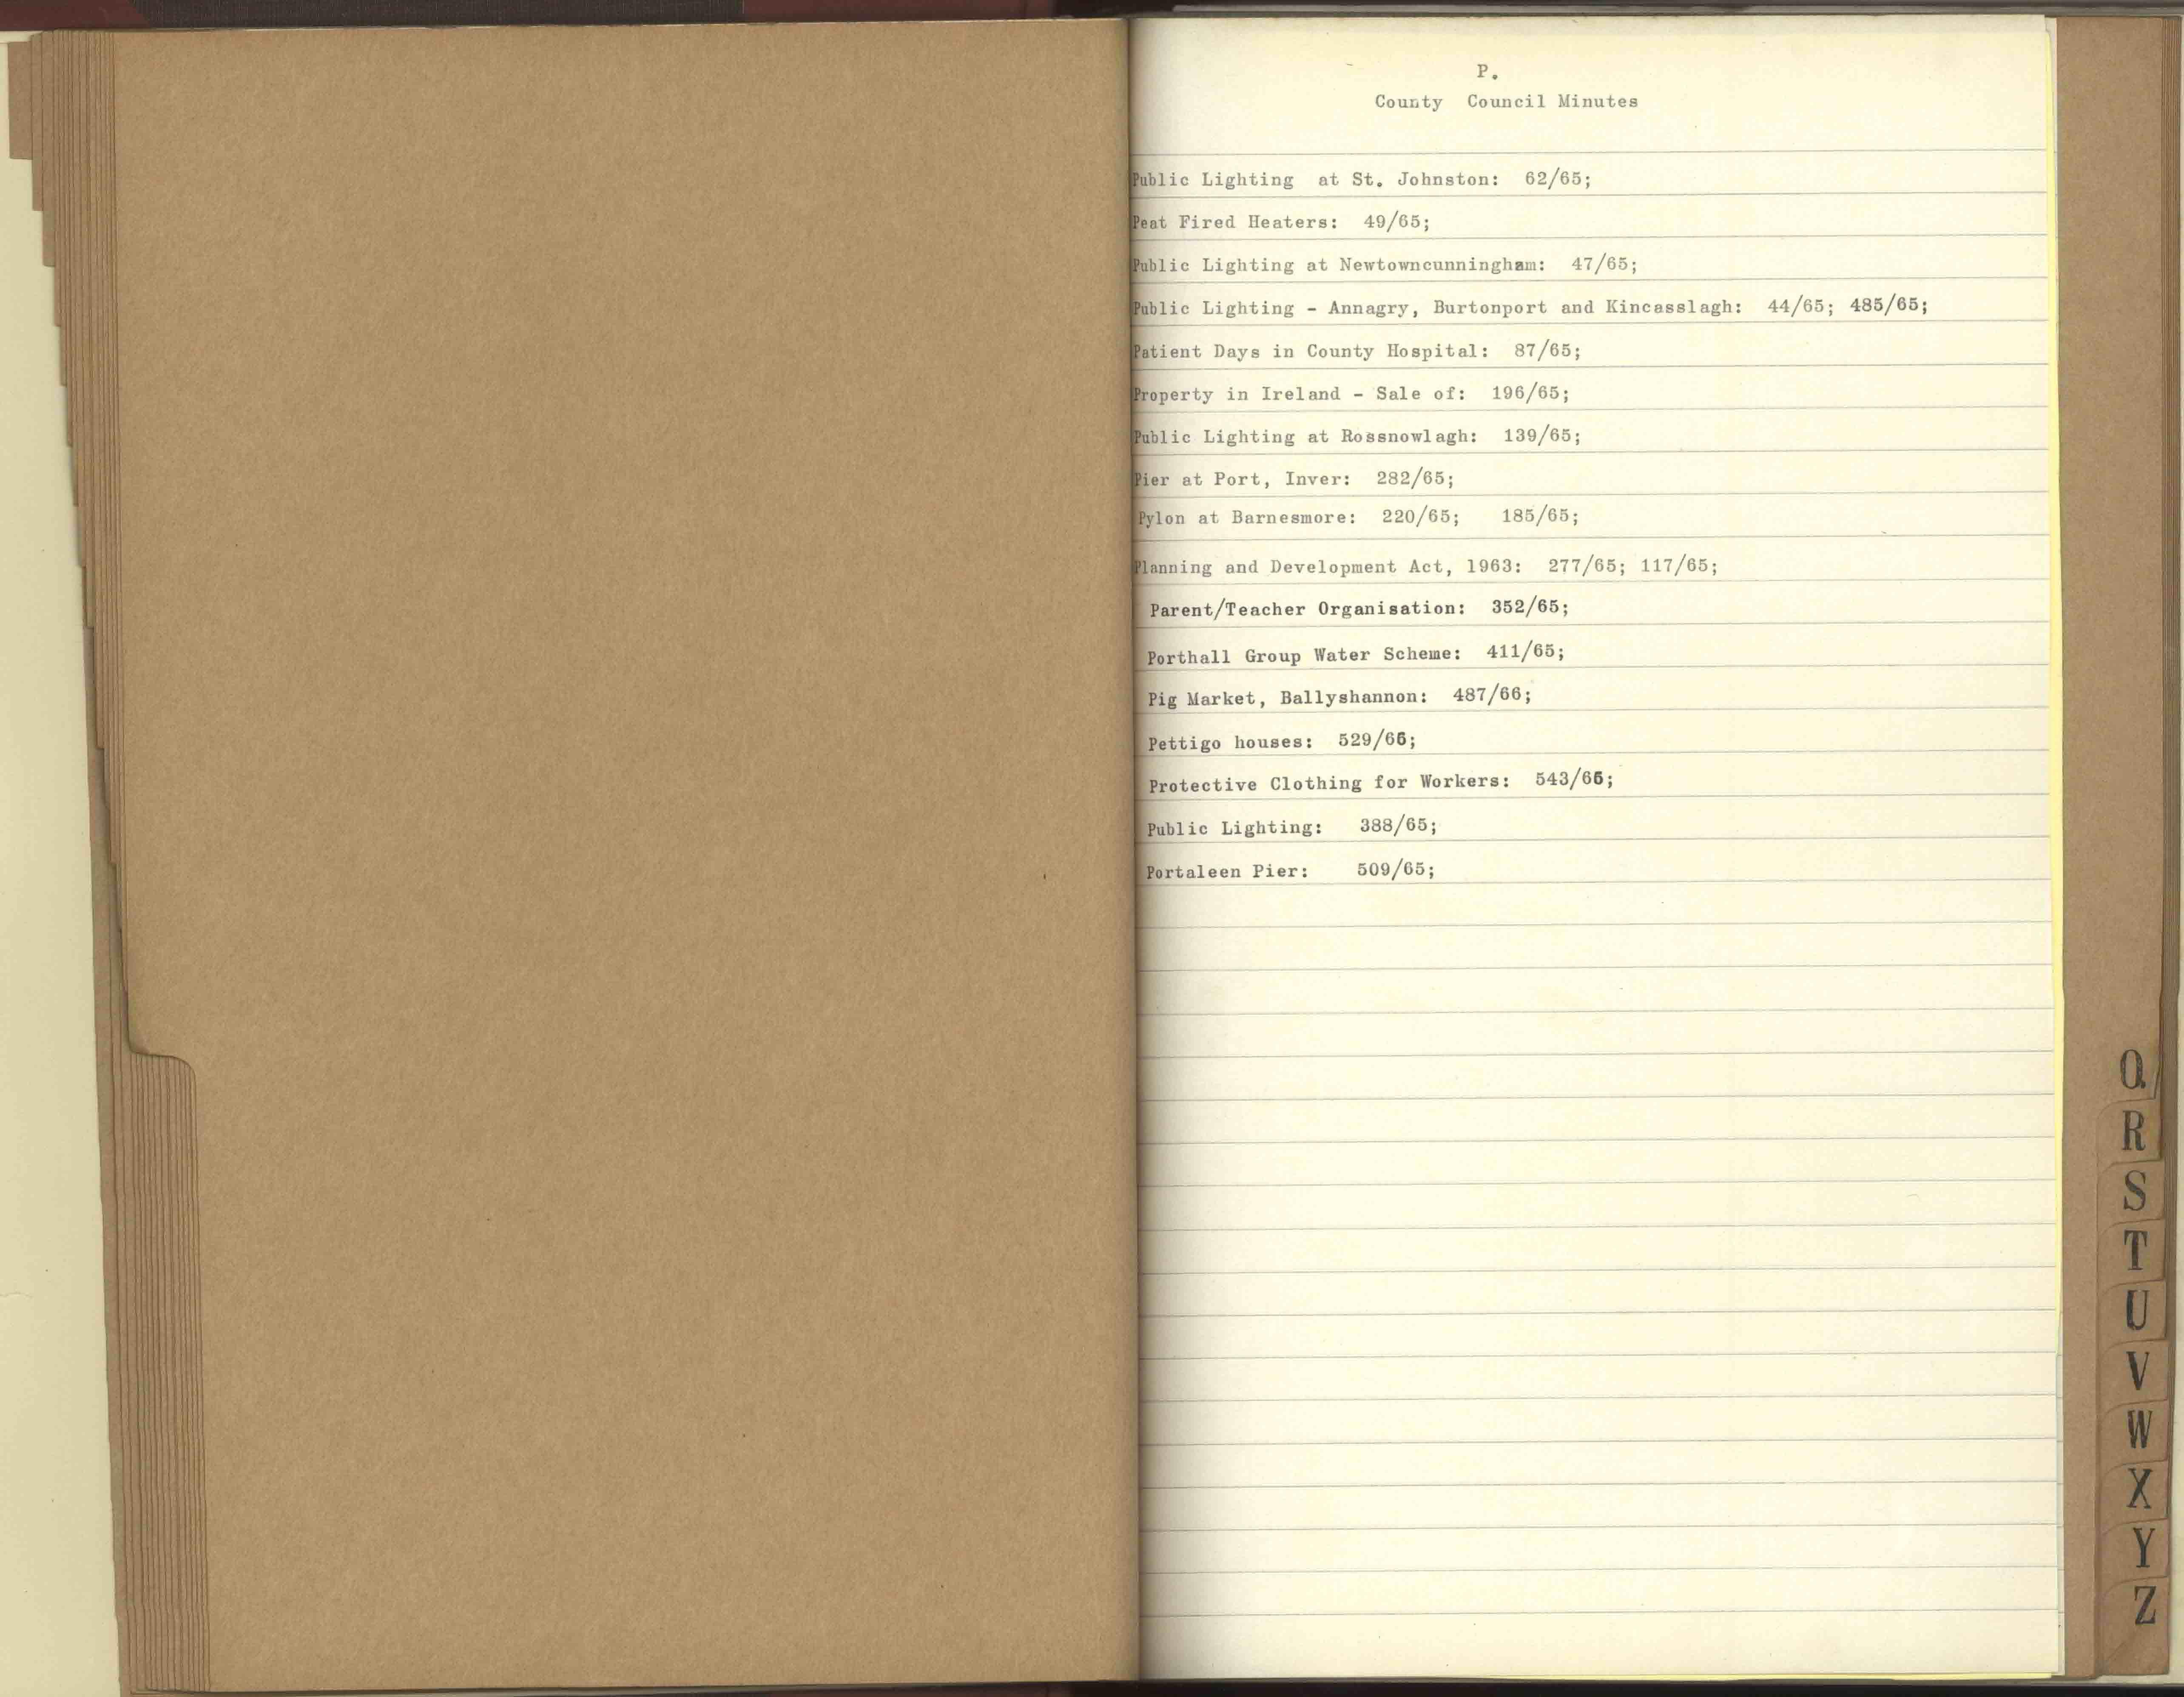 P.
County Council Minutes
Public Lighting at St. Johnston: 62/65;
Peat Fired Heaters: 49/65;
Public Lighting at Newtowncunningham: 47/65;
Public Lighting - Annagry, Burtonport and Kincasslagh: 44/65; 485/65;
Patient Days in County Hospital: 87/65;
Property in Ireland - Sale of: 196/65;
Public Lighting at Rossnowlagh: 139/65;
Pier at Port, Inver: 282/65;
Pylon at Barnesmore: 220/65; 185/65;
Planning and Development Act, 1963: 277/65; 117/65;
Parent/Teacher Organisation: 352/65;
Porthall Group Water Scheme: 411/65;
Pig Market, Ballyshannon: 487/66;
Pettigo houses: 529/66;
Protective Clothing for Workers: 543/66;
Public Lighting: 388/65;
Portaleen Pier: 509/65;
Q
R
S
T
U
V
W
X
Y
Z